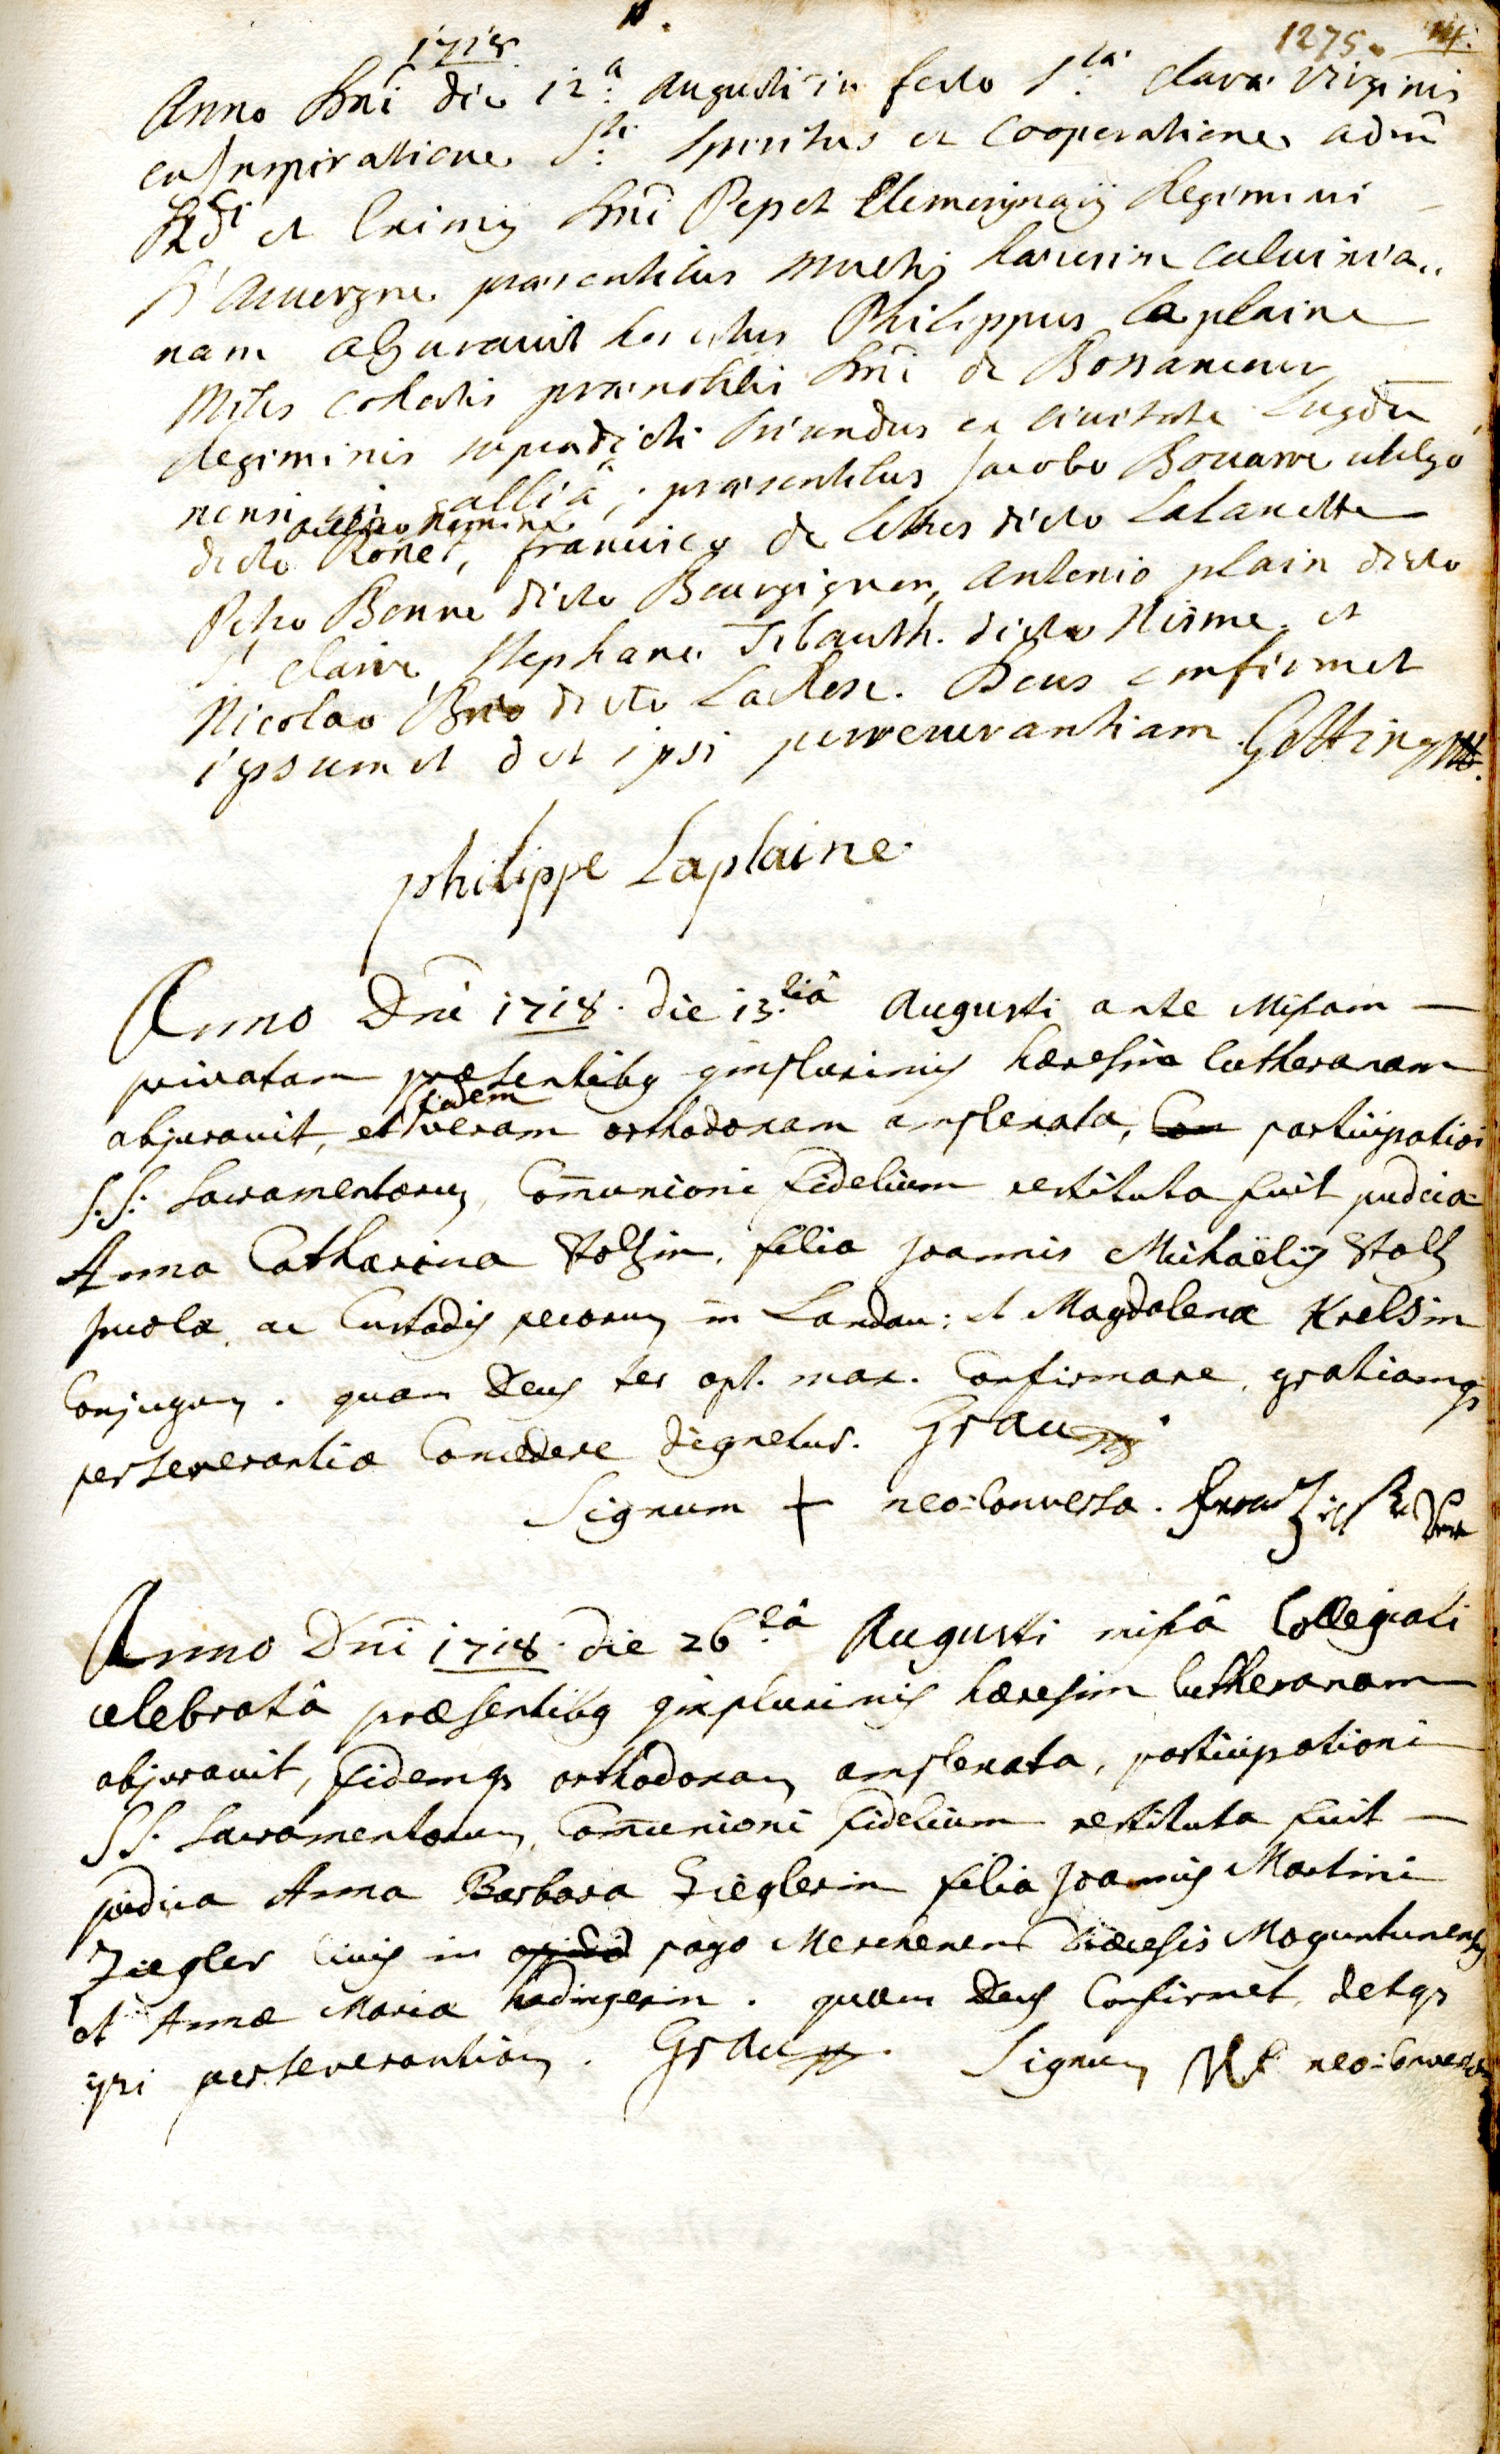 11.
1275. 14.
1718.
Anno Dni die 12.a Augusti in festo S.tae Clarae Virginis
ex Inspiratione S.ti Spiritus et Cooperatione adm
Rdi et Eximij Dni Pepet Elemosynarij Regiminis
D'Auvergne praesentibus multis haeresim Calvinia„
nam abjuravit honestus Philippus Laplaine
Miles cohortis praenobilis Dni de
Regiminis supradicti oriundus ex civitate Lugdu
nensi in Gallia, praesentibus Jacobo Bouarre vulgo
vulgo nomine
dicto Rone, francisco de dicto Lalanette
Petro Bonne dicto Bourgignon, Antonio plain dicto
St Claire, Stephano Tibauth. dicto Nisme. et
Nicolao dicto LaRose. Deus confirmet
ipsum et det ipsi perseverantiam. Gotting
philippe Laplaine
Anno Dni 1718. die 13.tiâ Augusti ante Missam —
privatam praesentibq qmplurimis haeresim lutheranam
fidem
abjuravit, et veram orthodoxam amplexata, participatioi
S.S. Sacramentorum, Comunioni fidelium restituta fuit pudica
Anna Catharina Stolzin, filia Joannis Michaëlis Stolz
Incolae ac Custodis pecorum in Landau: et Magdalenae Krelsin
Conjugum. quam Deus ter opt. max. Confirmare, gratiamq
perseverantiae Concedere dignetur. Grau
Signum + neo-Conversa.
Anno Dni 1718. die 26.tâ Augusti missâ Collegiali
celebratâ praesentibq qmplurimis haeresim lutheranam
abjuravit, fidemq orthodoxam amplexata, participationi
SS. Sacramentorum, Comunioni fidelium restituta fuit —
pudica Anna Barbara Zieglerin filia Joannis Martini
Ziegler Civis in pago Merchenen Dioecesis Moguntinensis
et Annae Maria hadingerin. quam Deus Confirmet, detq
ipsi perseverantiam. Grau Signum neo-Conversa